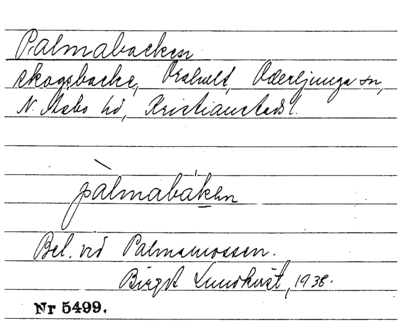 Palmabacken
skogsbacke, Oraholt, Oderljunga sn,
N. Åsbo hd, Kristianstads l.
pàlmabáken
Bel. vid Palmamossen.
Birgit Lundkvist, 1938.
Nr 5499.